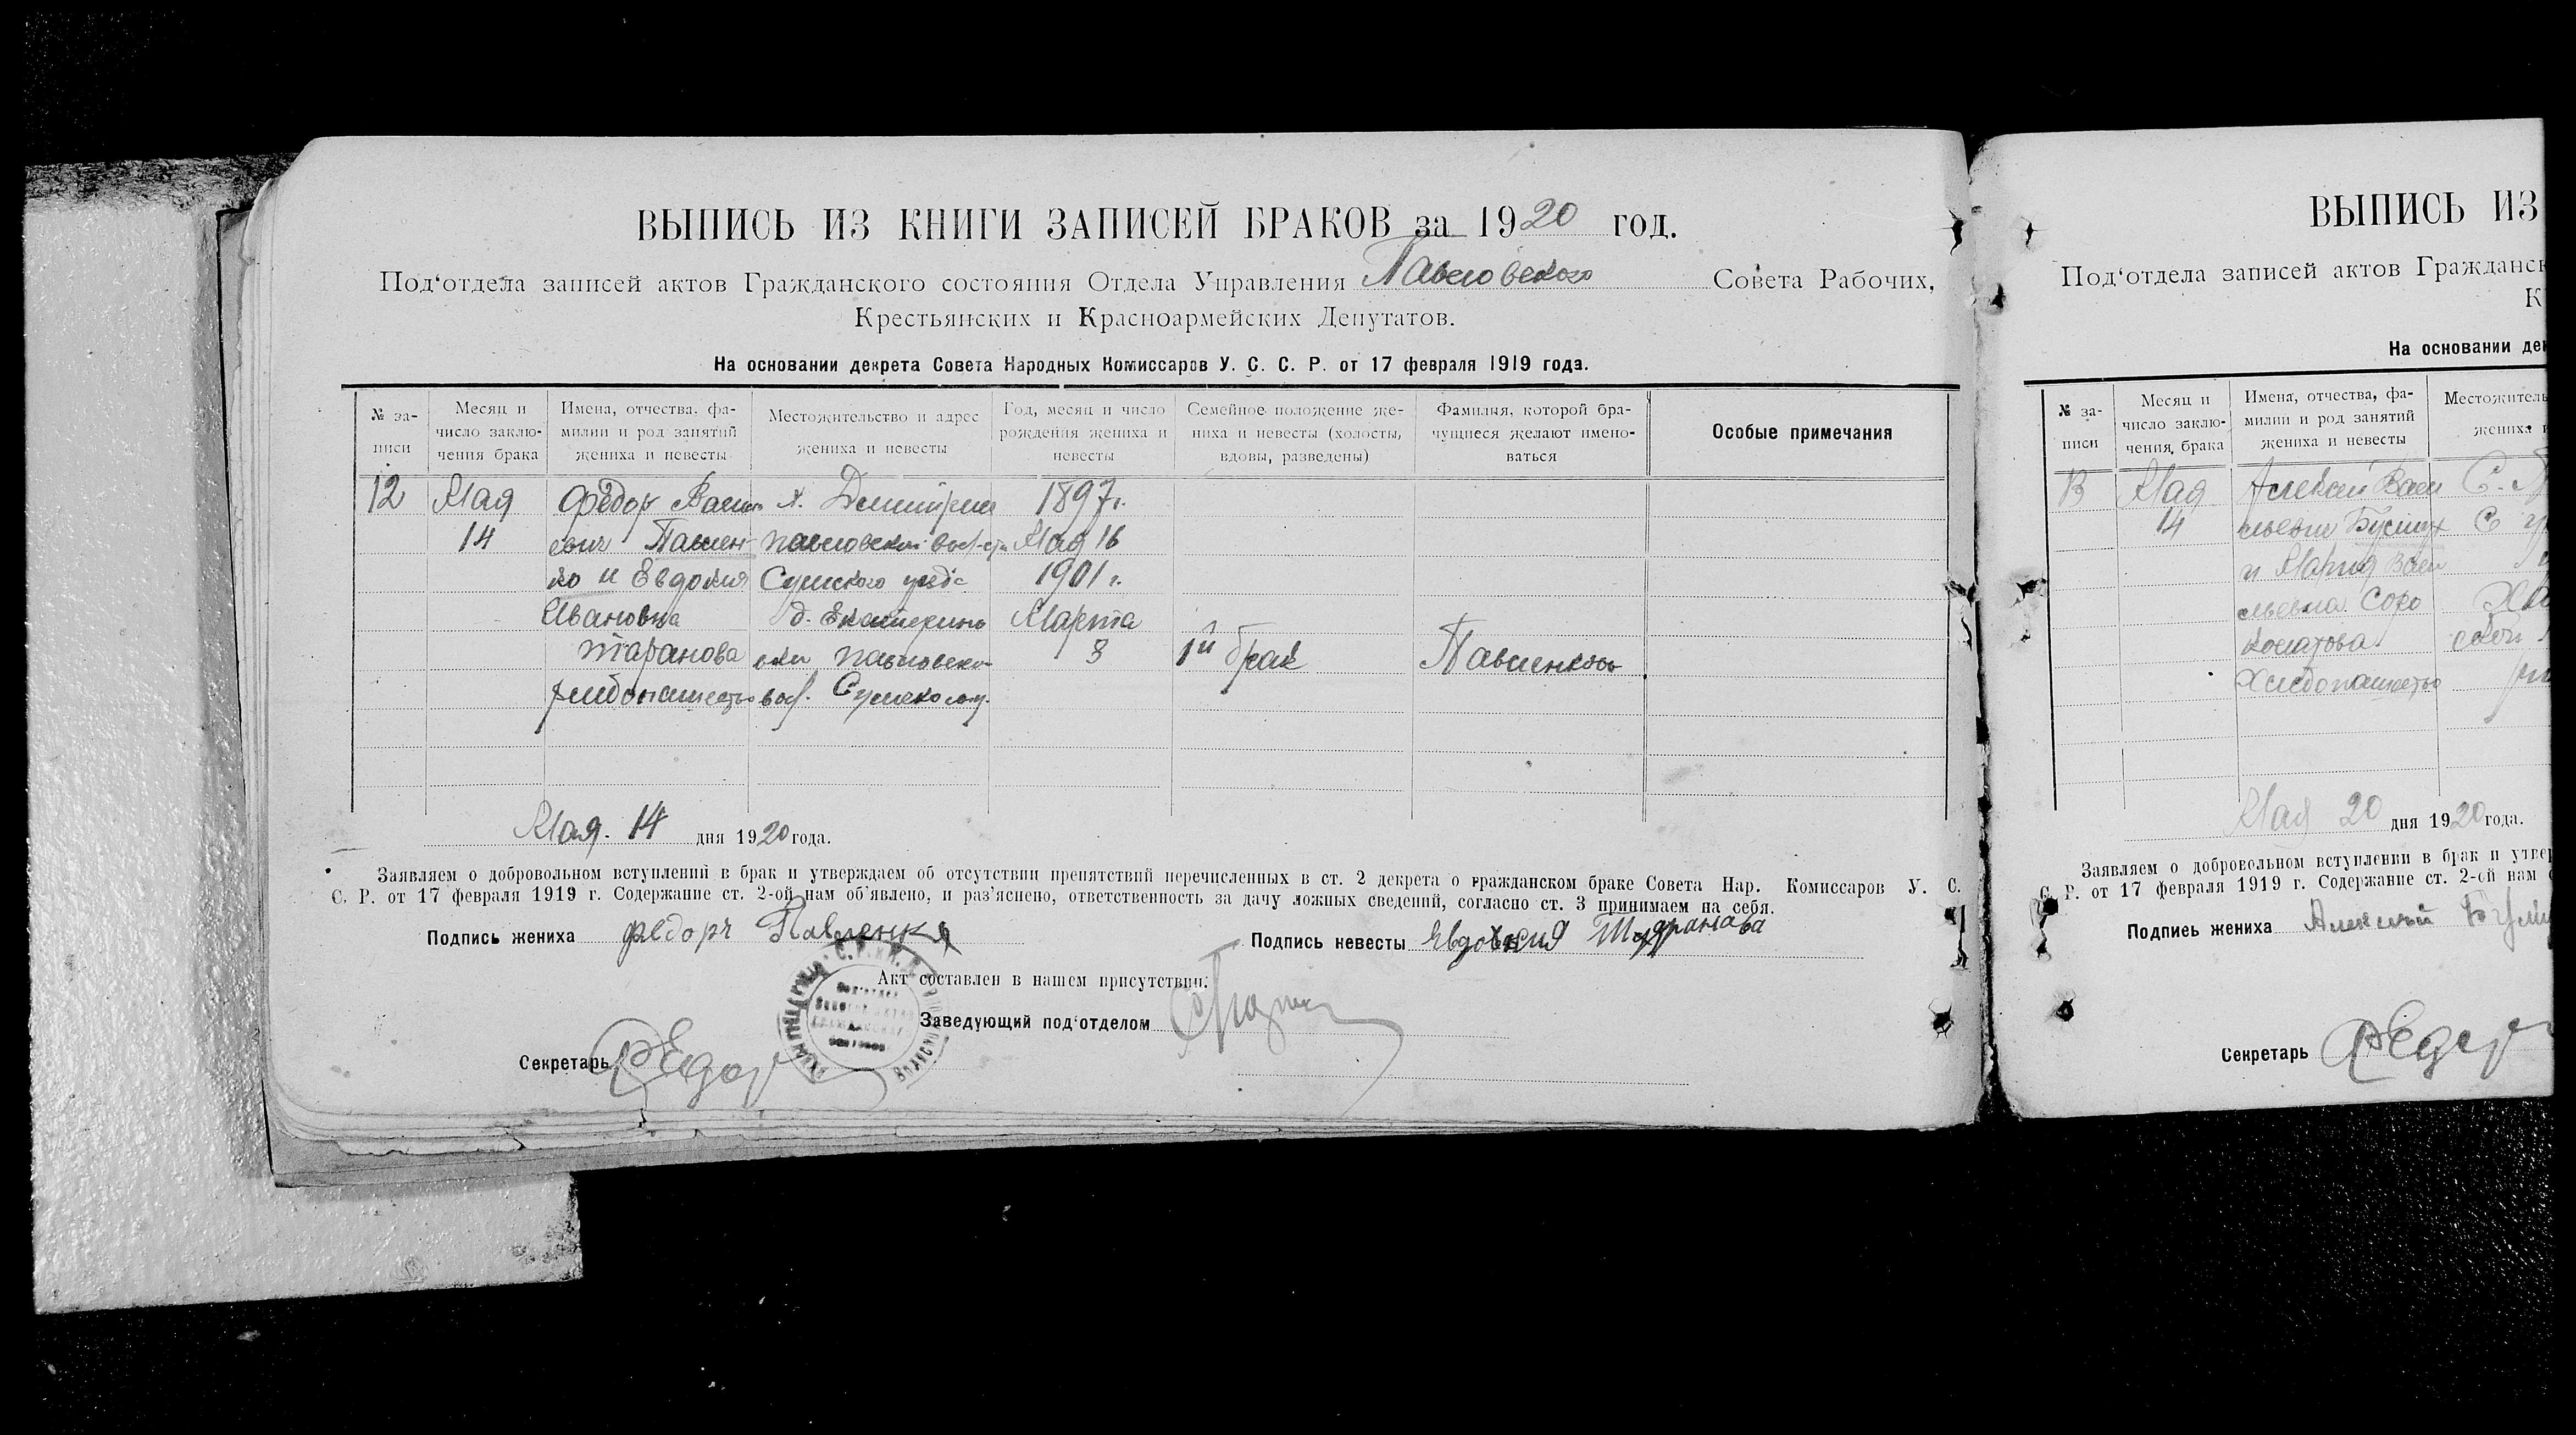 ВЫПИСЬ ИЗ КНИГИ ЗАПИСЕЙ БРАКОВ за 1920 год.
Под‘отдела записей актов Гражданского состояния Отдела Управления Павловского Совета Рабочих,
Крестьянских и Красноармейских Депутатов.
На основании декрета Совета Народных Комиссаров У. С. С. Р. от 17 февраля 1919 года.
№ за-
писи
Месяц и
число заклю-
чения брака
Имена, отчества, фа-
милии и род занятий
жениха и невесты
Местожительство и адрес
жениха и невесты
Год, месяц и число
рождения жениха и
невесты
Семейное положение же-
ниха и невесты (холосты,
вдовы, разведены)
Фамилия, которой бра-
чущиеся желают имено-
ваться
Особые примечания
12
Мая
14
Федор Васил
евич Павлен
ко и Евдокия
Ивановна
Таранова
х. Дмитрии
Павловской вол-сти
Сумского уезда
д. Екатерино
вки Павловской
вол. Сумского у.
1897 г.
Мая 16
1901 г.
Марта
8
1й брак
Павленковы
Мая. 14 дня 1920 года.
Заявляем о добровольном вступлении в брак и утверждаем об отсутствии препятствий перечисленных в ст. 2 декрета о гражданском браке Совета Нар. Комиссаров У. С.
С. Р. от 17 февраля 1919 г. Содержание ст. 2-ой нам об‘явлено, и раз‘яснено, ответственность за дачу ложных сведений, согласно ст. 3 принимаем на себя.
Подпись жениха Федоръ Павленка
Подпись невесты
Акт составлен в нашем присутствии:
Заведующий под‘отделом
Секретарь
ВЫПИСЬ ИЗ
Под‘отдела записей актов Гражданск
К
На основании дек
№ за-
писи
Месяц и
число заклю-
чения брака
Имена, отчества, фа-
милии и род занятий
жениха и невесты
Местожитель
жениха и
13
Мая
14
Алексей Васи
и Мария Васи
льевна Соро
Хлебопашество
Мая 20 дня 1920 года.
Заявляем о добровольном вступлении в брак и утвер
С. Р. от 17 февраля 1919 г. Содержание ст. 2-ой нам о
Подпись жениха
Секретарь